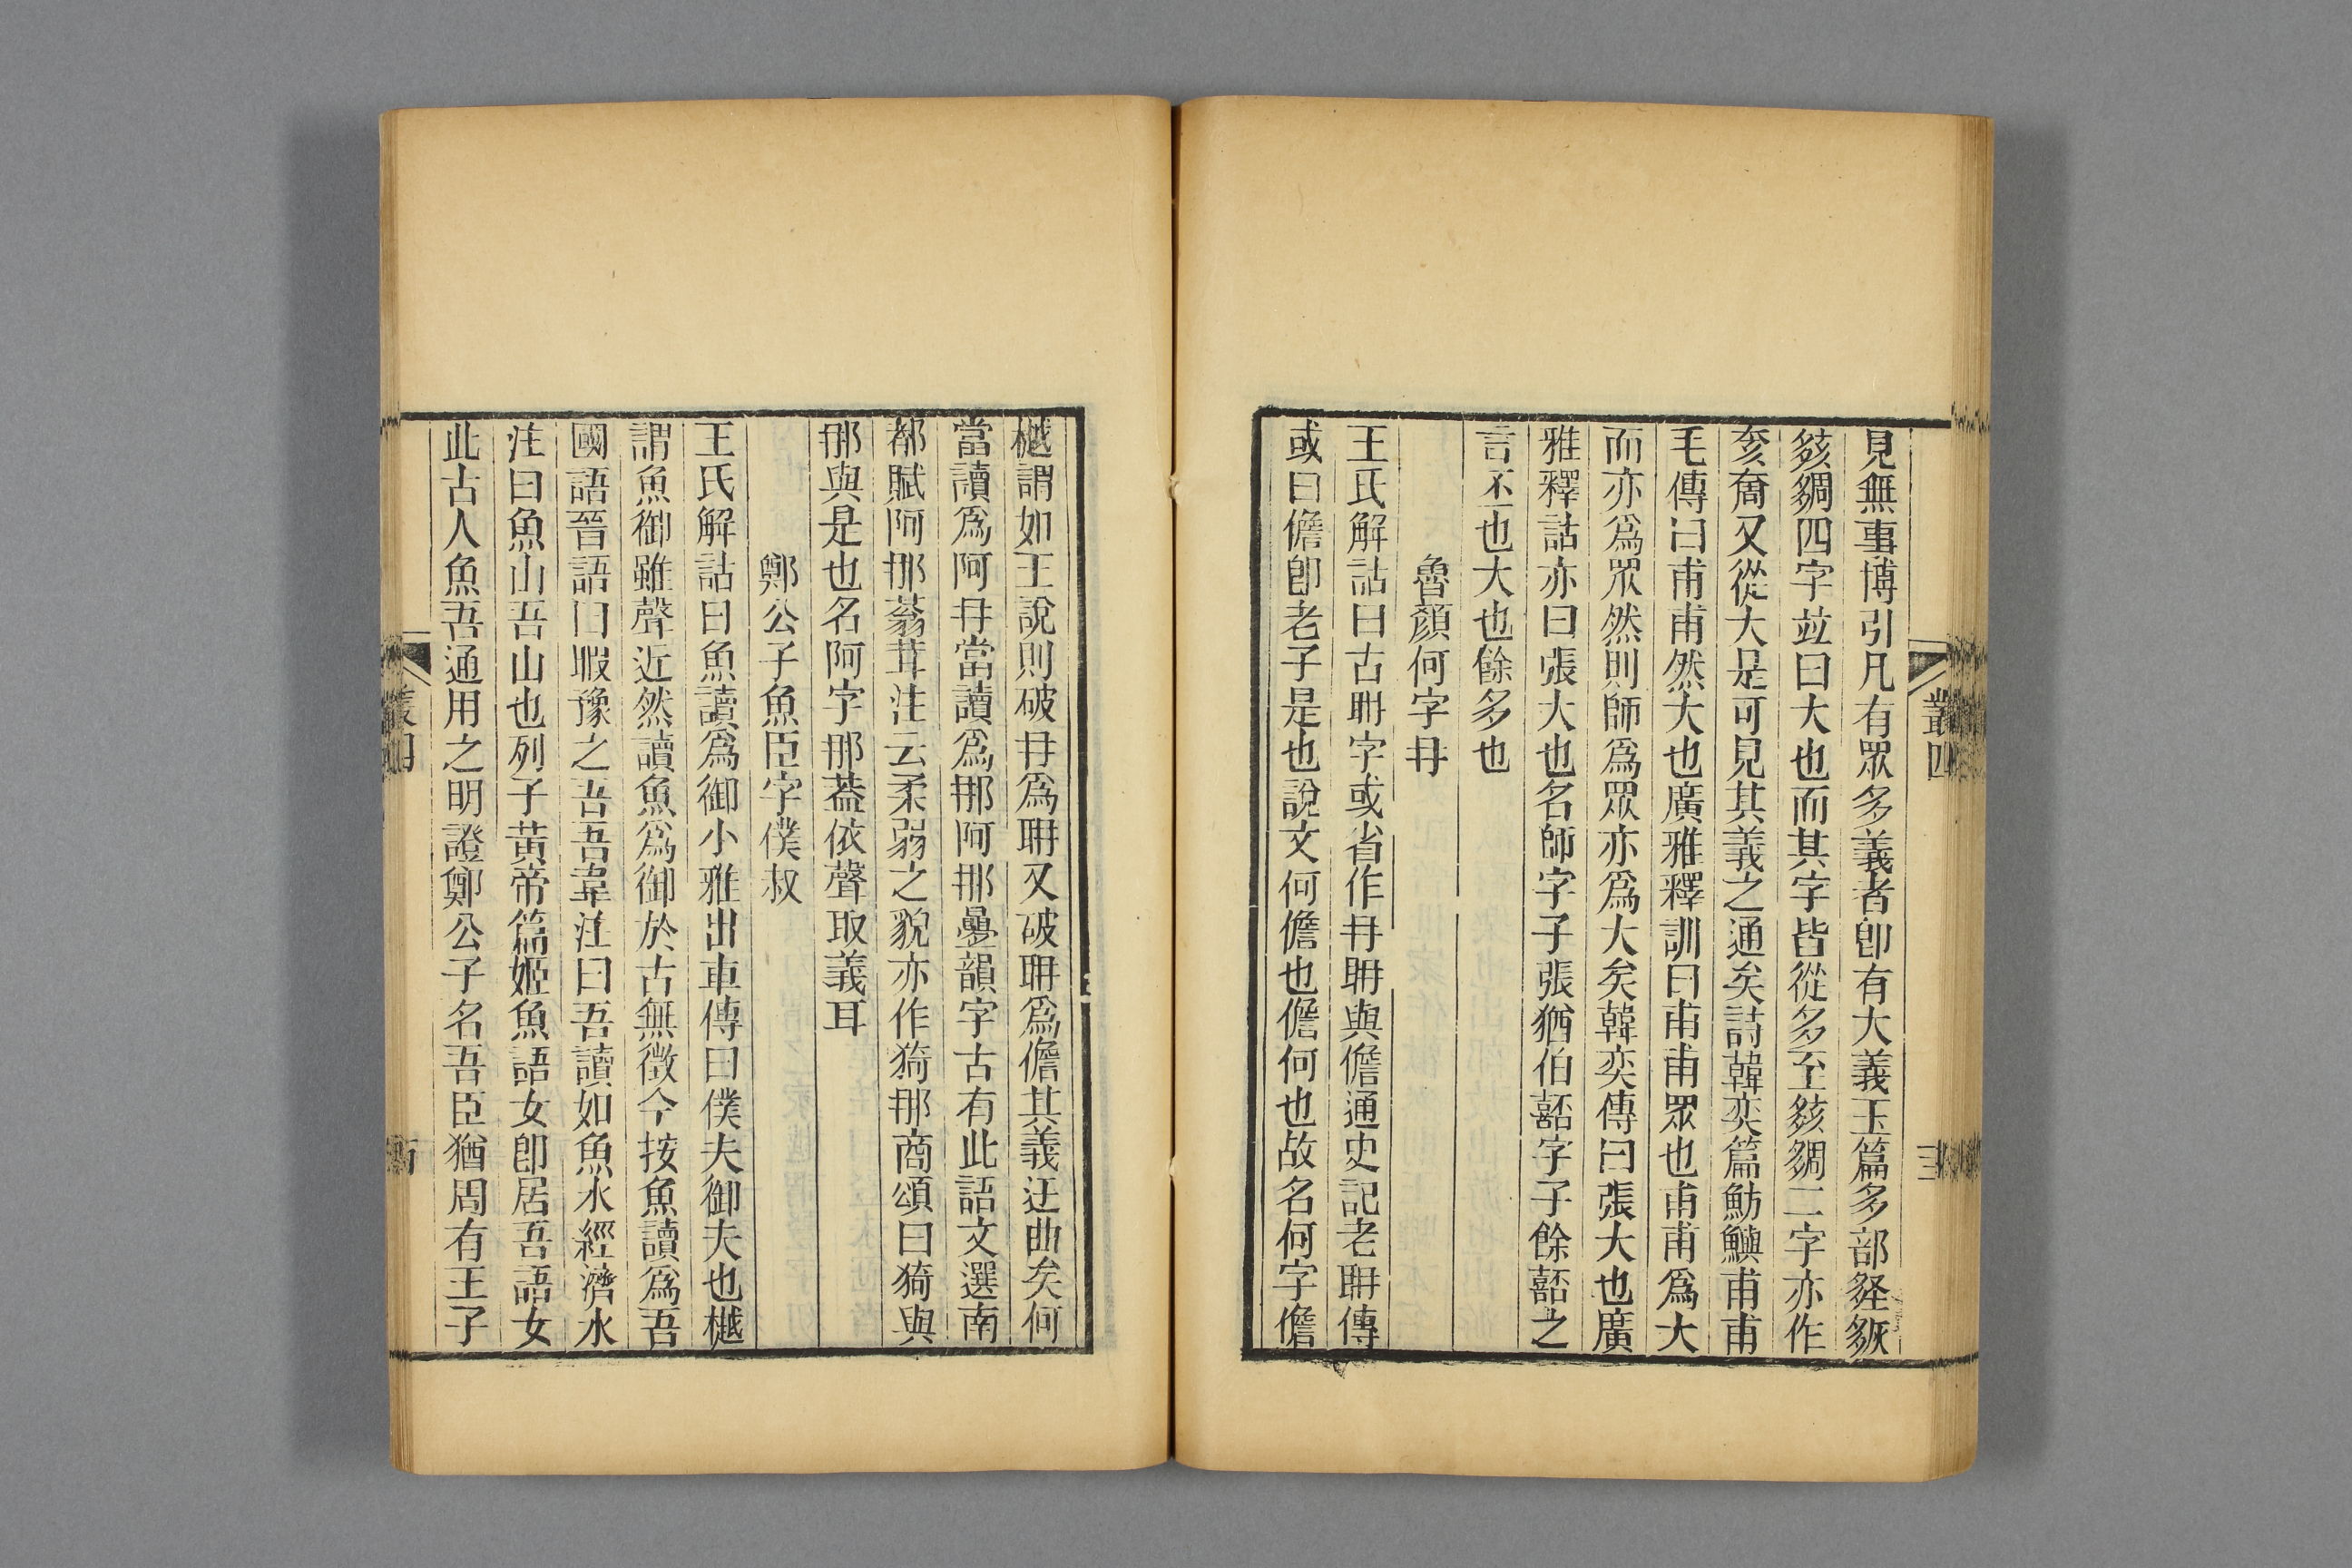 見無事博引凡有眾多義者卽有大義玉篇多部㚁㚊
㚊䎂四字竝曰大也而其字皆從多至㚊䎂二字亦作
奓奝又從大是可見其義之通矣詩韓奕篇魴鱮甫甫
毛傳曰甫甫然大也廣雅釋訓曰甫甫眾也甫甫爲大
而亦爲眾然則師爲眾亦爲大矣韓奕傳曰張大也廣
雅釋詁亦曰張大也名師字子張猶伯嚭字子餘嚭之
言丕也大也餘多也
魯顏何字冉
王氏解詁曰古耼字或省作冉耼與儋通史記老耼傳
或曰儋卽老子是也說文何儋也儋何也故名何字儋
叢四
樾謂如王說則破冉爲耼又破耼爲儋其義迂曲矣何
當讀爲阿冉當讀爲那阿那曡韻字古有此語文選南
都賦阿那蓊茸注云柔弱之貌亦作猗那商頌曰猗與
那與是也名阿字那葢依聲取義耳
鄭公子魚臣字僕叔
王氏解詁曰魚讀爲御小雅出車傳曰僕夫御夫也樾
謂魚御雖聲近然讀魚爲御於古無徵今按魚讀爲吾
國語晉語曰暇豫之吾吾韋注曰吾讀如魚水經濟水
注曰魚山吾山也列子黃帝篇姬魚語女卽居吾語女
此古人魚吾通用之明證鄭公子名吾臣猶周有王子